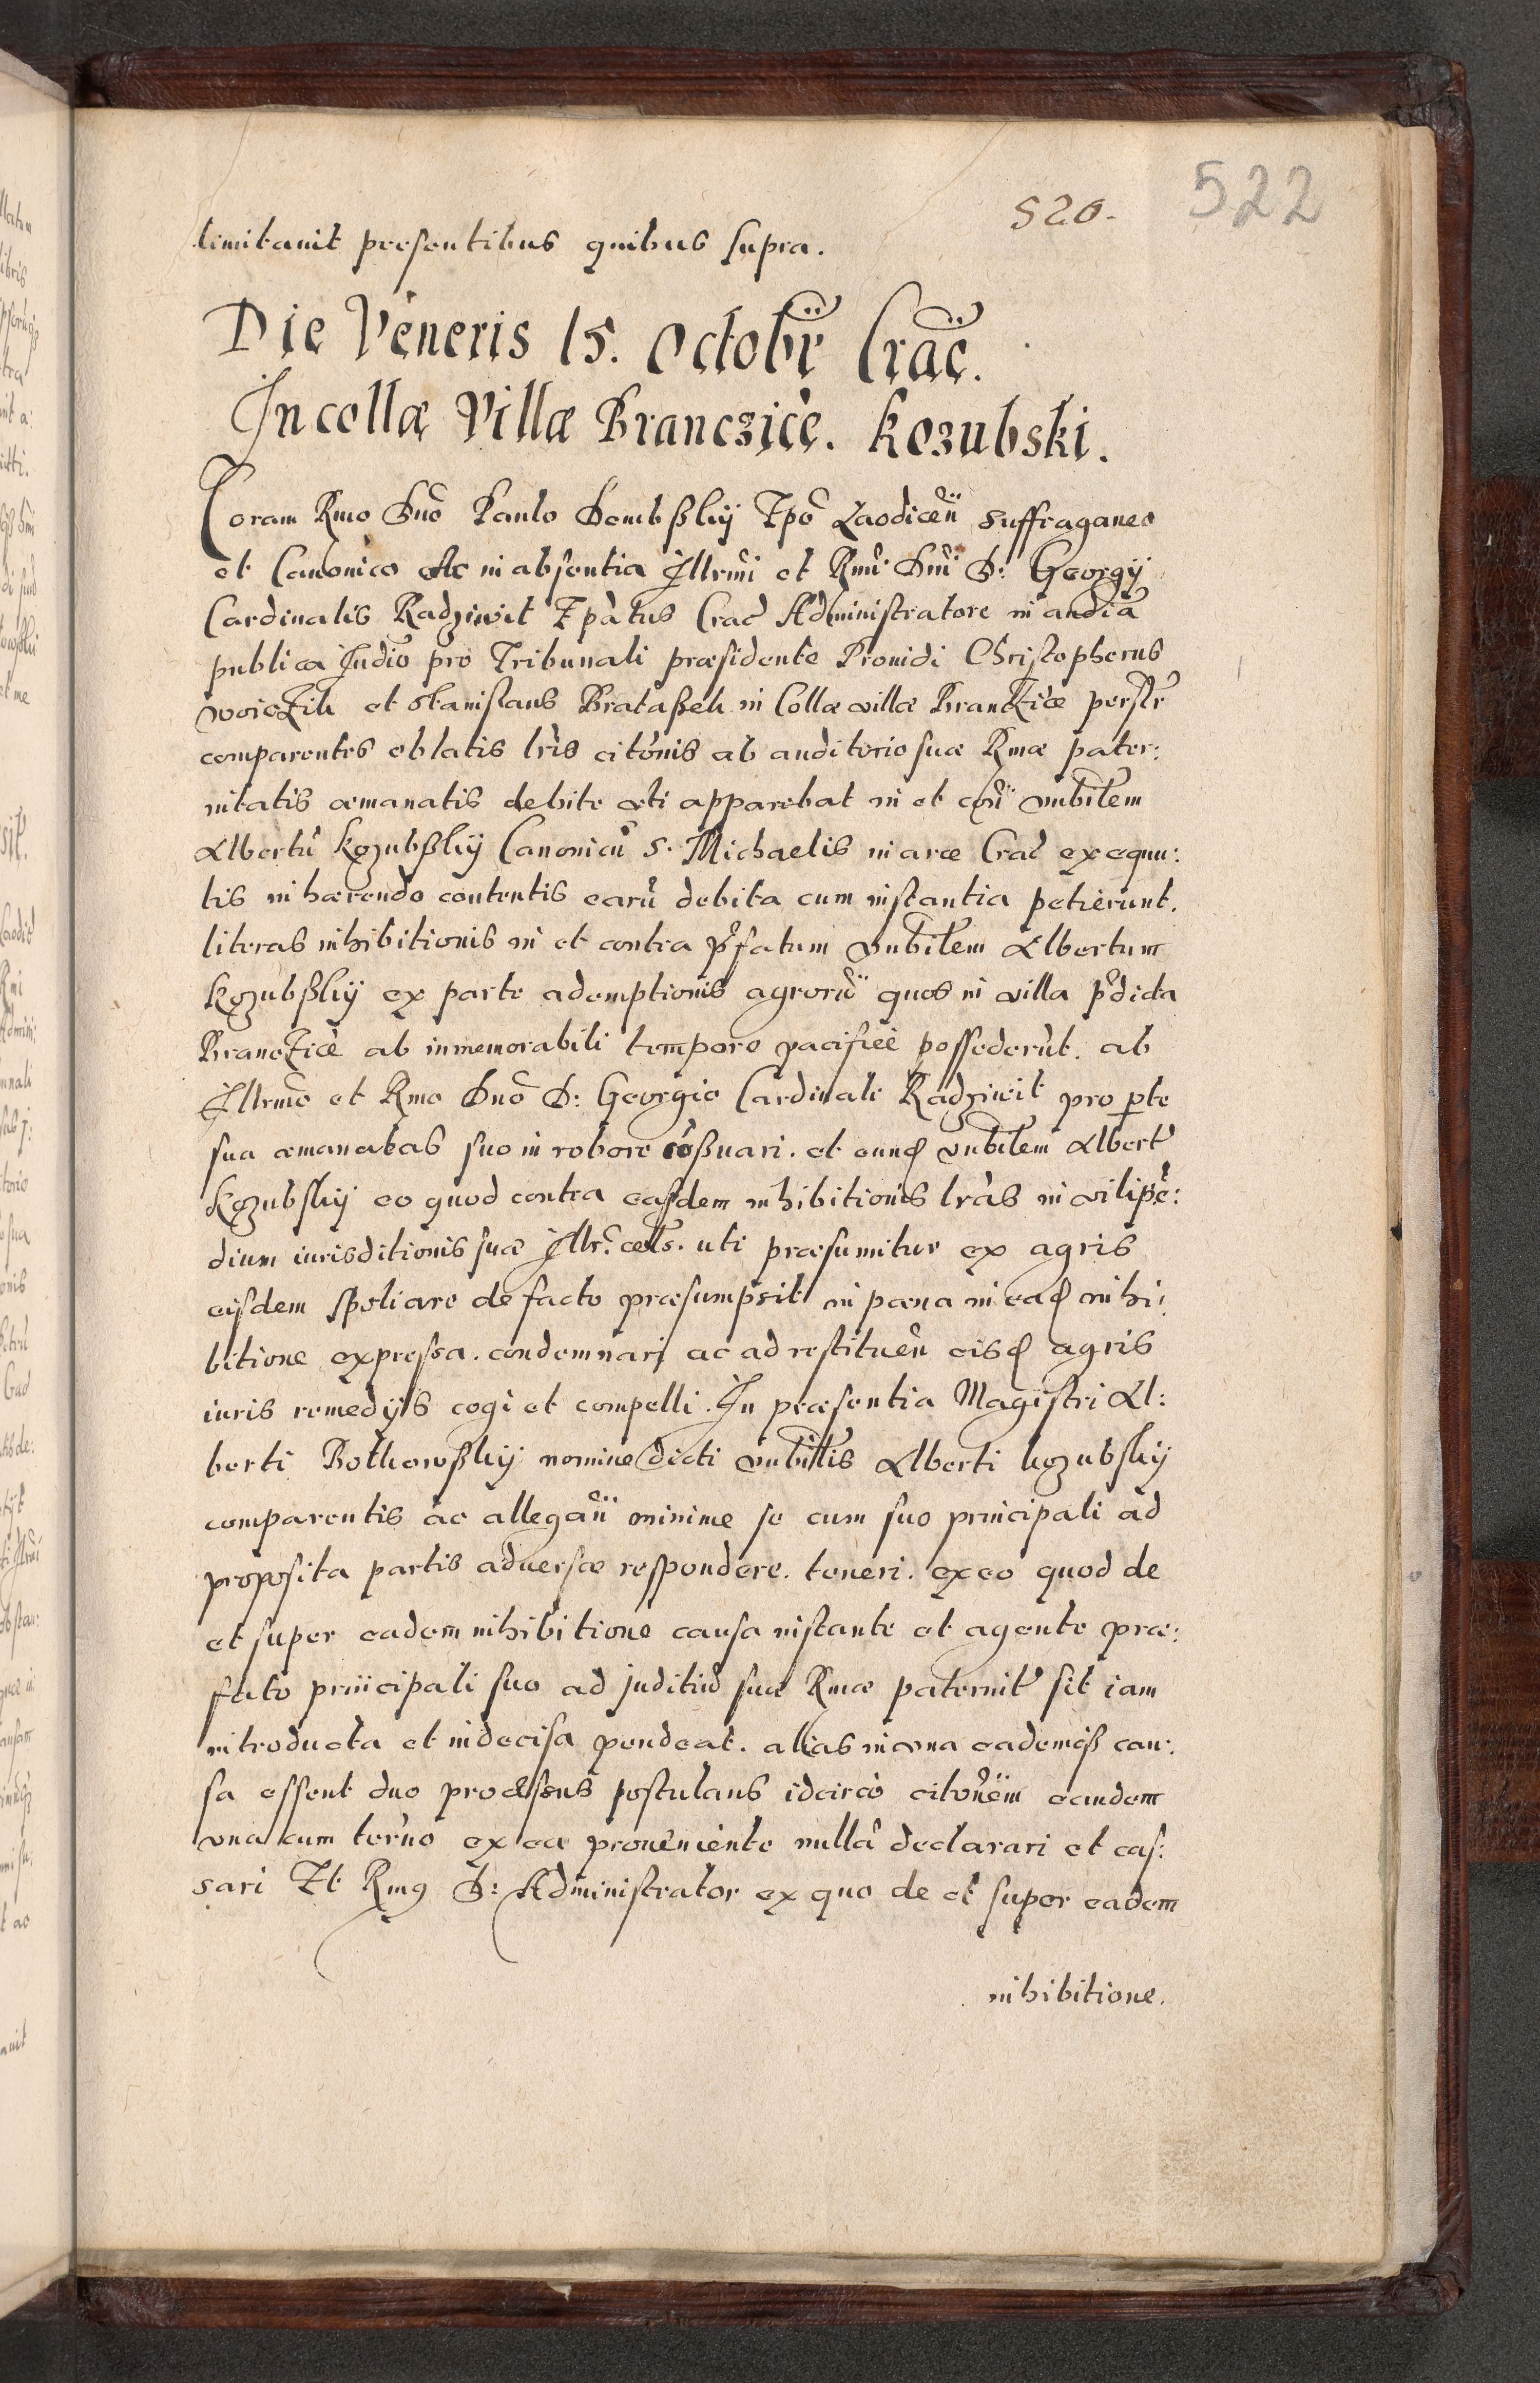 520.
522
limitauit presentibus quibus supra.
Die Veneris 15. Octobr̃ Crac̃.
Incollæ Villæ Branczicè. Kozubski.
Coram Rmo Dnõ Paulo Dembßkÿ Epõ Laodiceñ suffraganeo
et Canonico Ac in absentia Illrmi et Rmi Dni D: Georgÿ
Cardinalis Radziwił Epatus Crac̃ Administratore in audia
publica Judio pro Tribunali præsidente Prouidi Christopherus
et Stanislaus Brataßek in Collæ villæ Brantzice perslr̃
comparentes oblatis lris citonis ab auditorio suæ Rmæ pater:
nitatis æmanatis debite uti apparebat in et con̈ vnbilem
Albertũ Kozubßkÿ Canonicũ S. Michaelis in arce Crac̃ exequu:
tis inhærendo contentis earũ debita cum instantia petierunt.
literas inhibitionis in et contra p̃fatum vnbilem Albertum
Kozubßkÿ ex parte ademptionis agrorũ quos in villa p̃dicta
Brantzicè ab inmemorabili tempore pacificè possederũt. ab
Illrmo et Rmo Dnõ D: Georgio Cardinali Radziwił pro pte
sua æmanatas suo in robore cõßuari. et eunđ vnbilem Albert̃
Kozubskÿ eo quod contra easdem inhibitionis lras in vilipẽ:
dium iurisditionis suæ Illr. cels. uti præsumitur ex agris
eisdem spoliare de facto præsumpsit in pæna in eađ inhi:
bitione expressa. condemnari ac ad restituen̈ eisđ agris
iuris remedÿs cogi et compelli. In præsentia Magistri Al:
berti Botkowßkÿ nomine dicti vnbilis Alberti Kozubskÿ
comparentis ac allegan̈ minime se cum suo principali ad
proposita partis aduersæ respondere. teneri. ex eo quod de
et super eadem inhibitione causa instante et agente præ:
fato principali suo ad juditiũ suæ Rmæ paternit̃ sit iam
introducta et indecisa pendeat. alias in vna eademqß cau:
sa essent duo processus postulans idcircò citonem eandem
vna cum ternõ ex ea proueniente nullã declarari et cas:
sari Et Rmꝰ D: Administrator ex quo de et super eadem
inhibitione.